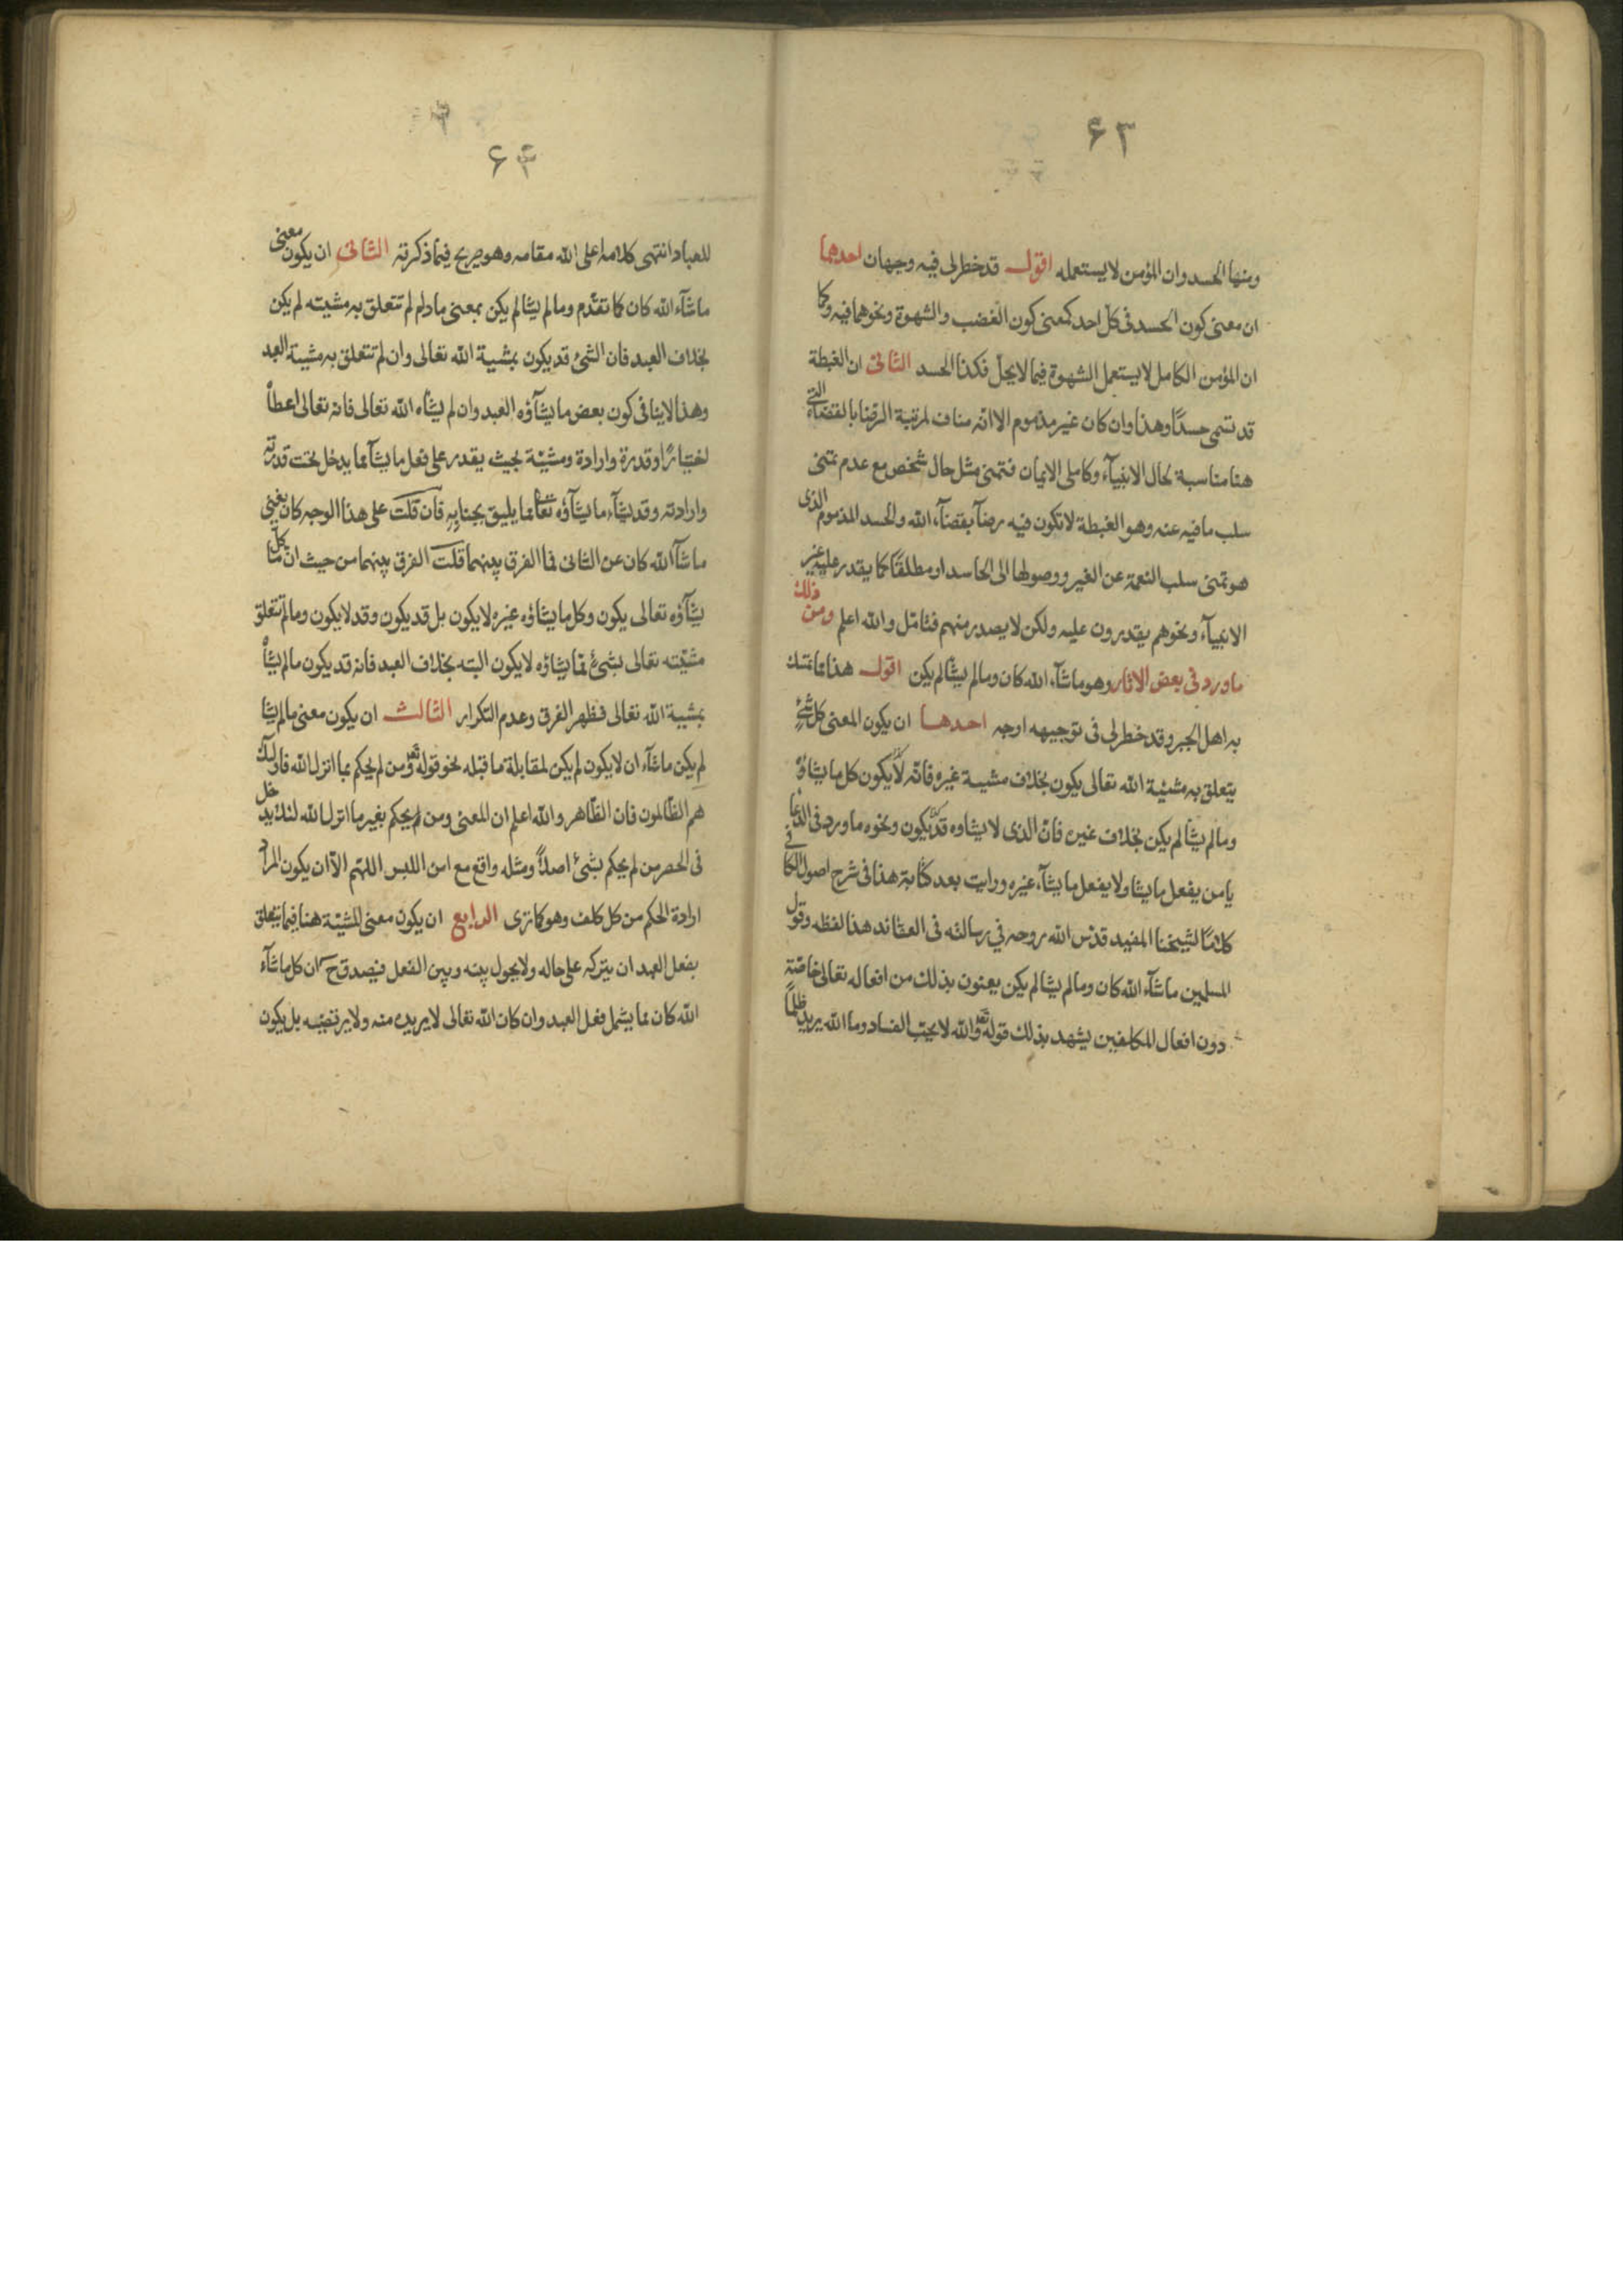 ۶۳
ومنها الحسد وان المؤمن لا يستعمله اقول قد خطر لى فيه وجهان احدهما
ان معنى كون الحسد فى كل احد كمعنى كون الغضب والشهوة ونحوهما فيه وكما
ان المؤمن الكامل لا يستعمل الشهوة فيما لا يحل فكذا الحسد الثانى ان الغبطة
قد تسمى حسدًا وهذا وان كان غير مذموم الا انّه مناف لمرتبة الرضا بالقضاء التى
هنا مناسبة لحال الانبيآء وكاملى الايمان فتمنى مثل حال شخص مع عدم تمنى
سلب ما فيه عنه وهو الغبطة لا تكون فيه رضآ بقضآء الله والحسد المذموم الذى
هو تمنى سلب النعمة عن الغير ووصولها الى الحاسد او مطلقًا كما يقدر عليه غير
الانبيآء ونحوهم يقدرون عليه ولكن لا يصدر منهم فتامّل والله اعلم ومن ذلك
ما ورد فى بعض الاثار وهو ما شآء الله كان وما لم يشأ لم يكن اقول هذا مما تمسك
به اهل الجبر وقد خطر لى فى توجيهه اوجه احدها ان يكون المعنى كل شئ
يتعلق به مشيّة الله تعالى يكون بخلاف مشيية غيره فانّه لا يكون كل ما يشاؤه
وما لم يشأ لم يكن بخلاف غيره فانّ الذى لا يشاوه قد يكون ونحوه ما ورد فى الدعا
يا من يفعل ما يشا ولا يفعل ما يشآء غيره ورايت بعد كتابة هذا فى شرح اصول الكافى
كلامًا لشيخنا المفيد قدّس الله روحه في رسالته فى العقائد هذا لفظه وقول
المسلمين ما شآء الله كان وما لم يشا لم يكن يعنون بذلك من افعاله تعالى خاصّة
دون افعال المكلفين يشهد بذلك قوله تعو والله لا يحبّ الفساد وما الله يريد ظلمًا
۶۴
للعباد انتهى كلامه اعلى الله مقامه وهو صريح فيما ذكرته الثانى ان يكون معنى
ما شآء الله كان كما تقدّم وما لم يشا لم يكن بمعنى ما دام لم تتعلق به مشيته لم يكن
بخلاف العبد فان الشئ قد يكون بمشيية الله تعالى وان لم تتعلق به مشيية العبد
وهذا لا ينافى كون بعض ما يشآؤه العبد وان لم يشاه الله تعالى فانه تعالى اعطاه
اختيارًا وقدرة وارادة ومشيّة بحيث يقدر على فعل ما يشآ مما يدخل تحت قدرته
وارادته وقد يشآء ما يشآؤه تعا مما يليق بجنابه فان قلت على هذا الوجه كان يغنى
ما شآ الله كان عن الثانى فما الفرق بينهما قلت الفرق بينهما من حيث ان كل ما
يشآؤه تعالى يكون وكل ما يشاؤه غيره لا يكون بل قد يكون وقد لا يكون وما لم تتعلق
مشيّته تعالى بشئ مما يشاؤه لا يكون البته بخلاف العبد فانه قد يكون ما لم يشأه
بمشيية الله تعالى فظهر الفرق وعدم التكرار الثالث ان يكون معنى ما لم يشا
لم يكن ما شآء ان لا يكون لم يكن لمقابلة ما قبله نحو قوله تعو ومن لم يحكم بما انزل الله فاولئك
هم الظّالمون فان الظّاهر والله اعلم ان المعنى ومن لم يحكم بغير ما انزل الله لئلا يدخل
فى الحصر من لم يحكم بشئ اصلاً ومثله واقع مع امن اللبس اللهّم الّا ان يكون المراد
ارادة الحكم من كل كلف وهو كما ترى الرابع ان يكون معنى للشيّة هنا فيما يتعلق
بفعل العبد ان يتركه على حاله ولا يحول بينه وبين الفعل فيصدق ح ان كل ما شآء
الله كان مما يشمل فعل العبد وان كان الله تعالى لا يريده منه ولا يرتضيه بل يكون